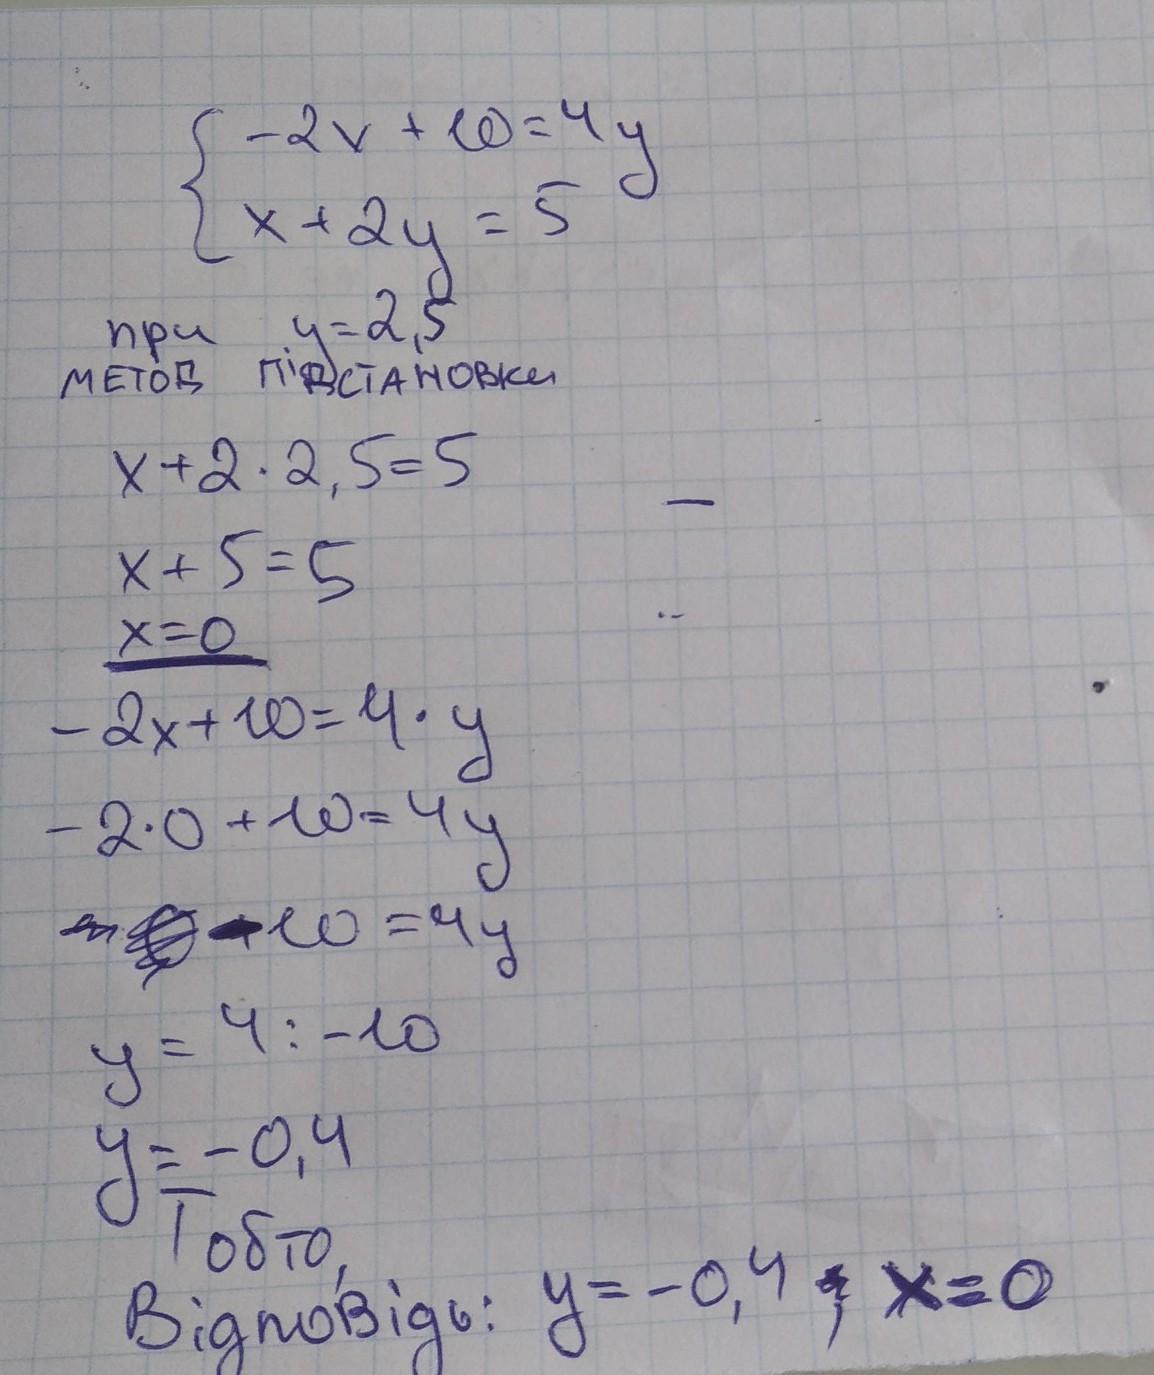 -2x + 10 = 4y
x + 2y = 5
при y = 2,5
МЕТОД ПІДСТАНОВКИ
x + 2 · 2,5 = 5
x + 5 = 5
x = 0
-2x + 10 = 4 · y
-2 · 0 + 10 = 4y
10 = 4y
y = 4 : -10
y = -0,4
Тобто,
Відповідь: y = -0,4 ; x = 0